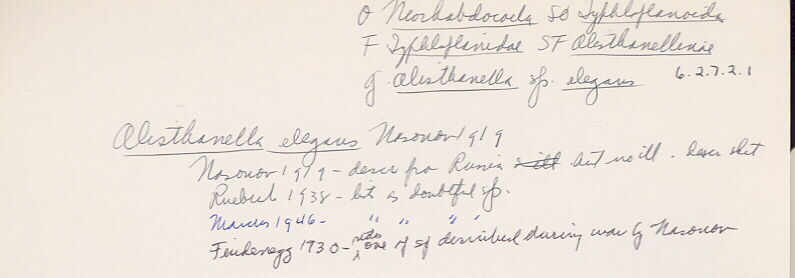 O Neorhabdocoela SO Typhloplanoida
F Typhloplanidae SF Olisthanellinae
g. Olisthanella sp. elegans 6.2.7.2.1
Olisthanella elegans Nasonov 1919
Nasonov 1919 - descr fro Russia with but no ill. - have xht
Ruebush 1938 - lists as doubtful sp.
Marcus 1946 - " " " "
Findenegg 1930 - notes one of sp described during war by Nasonov